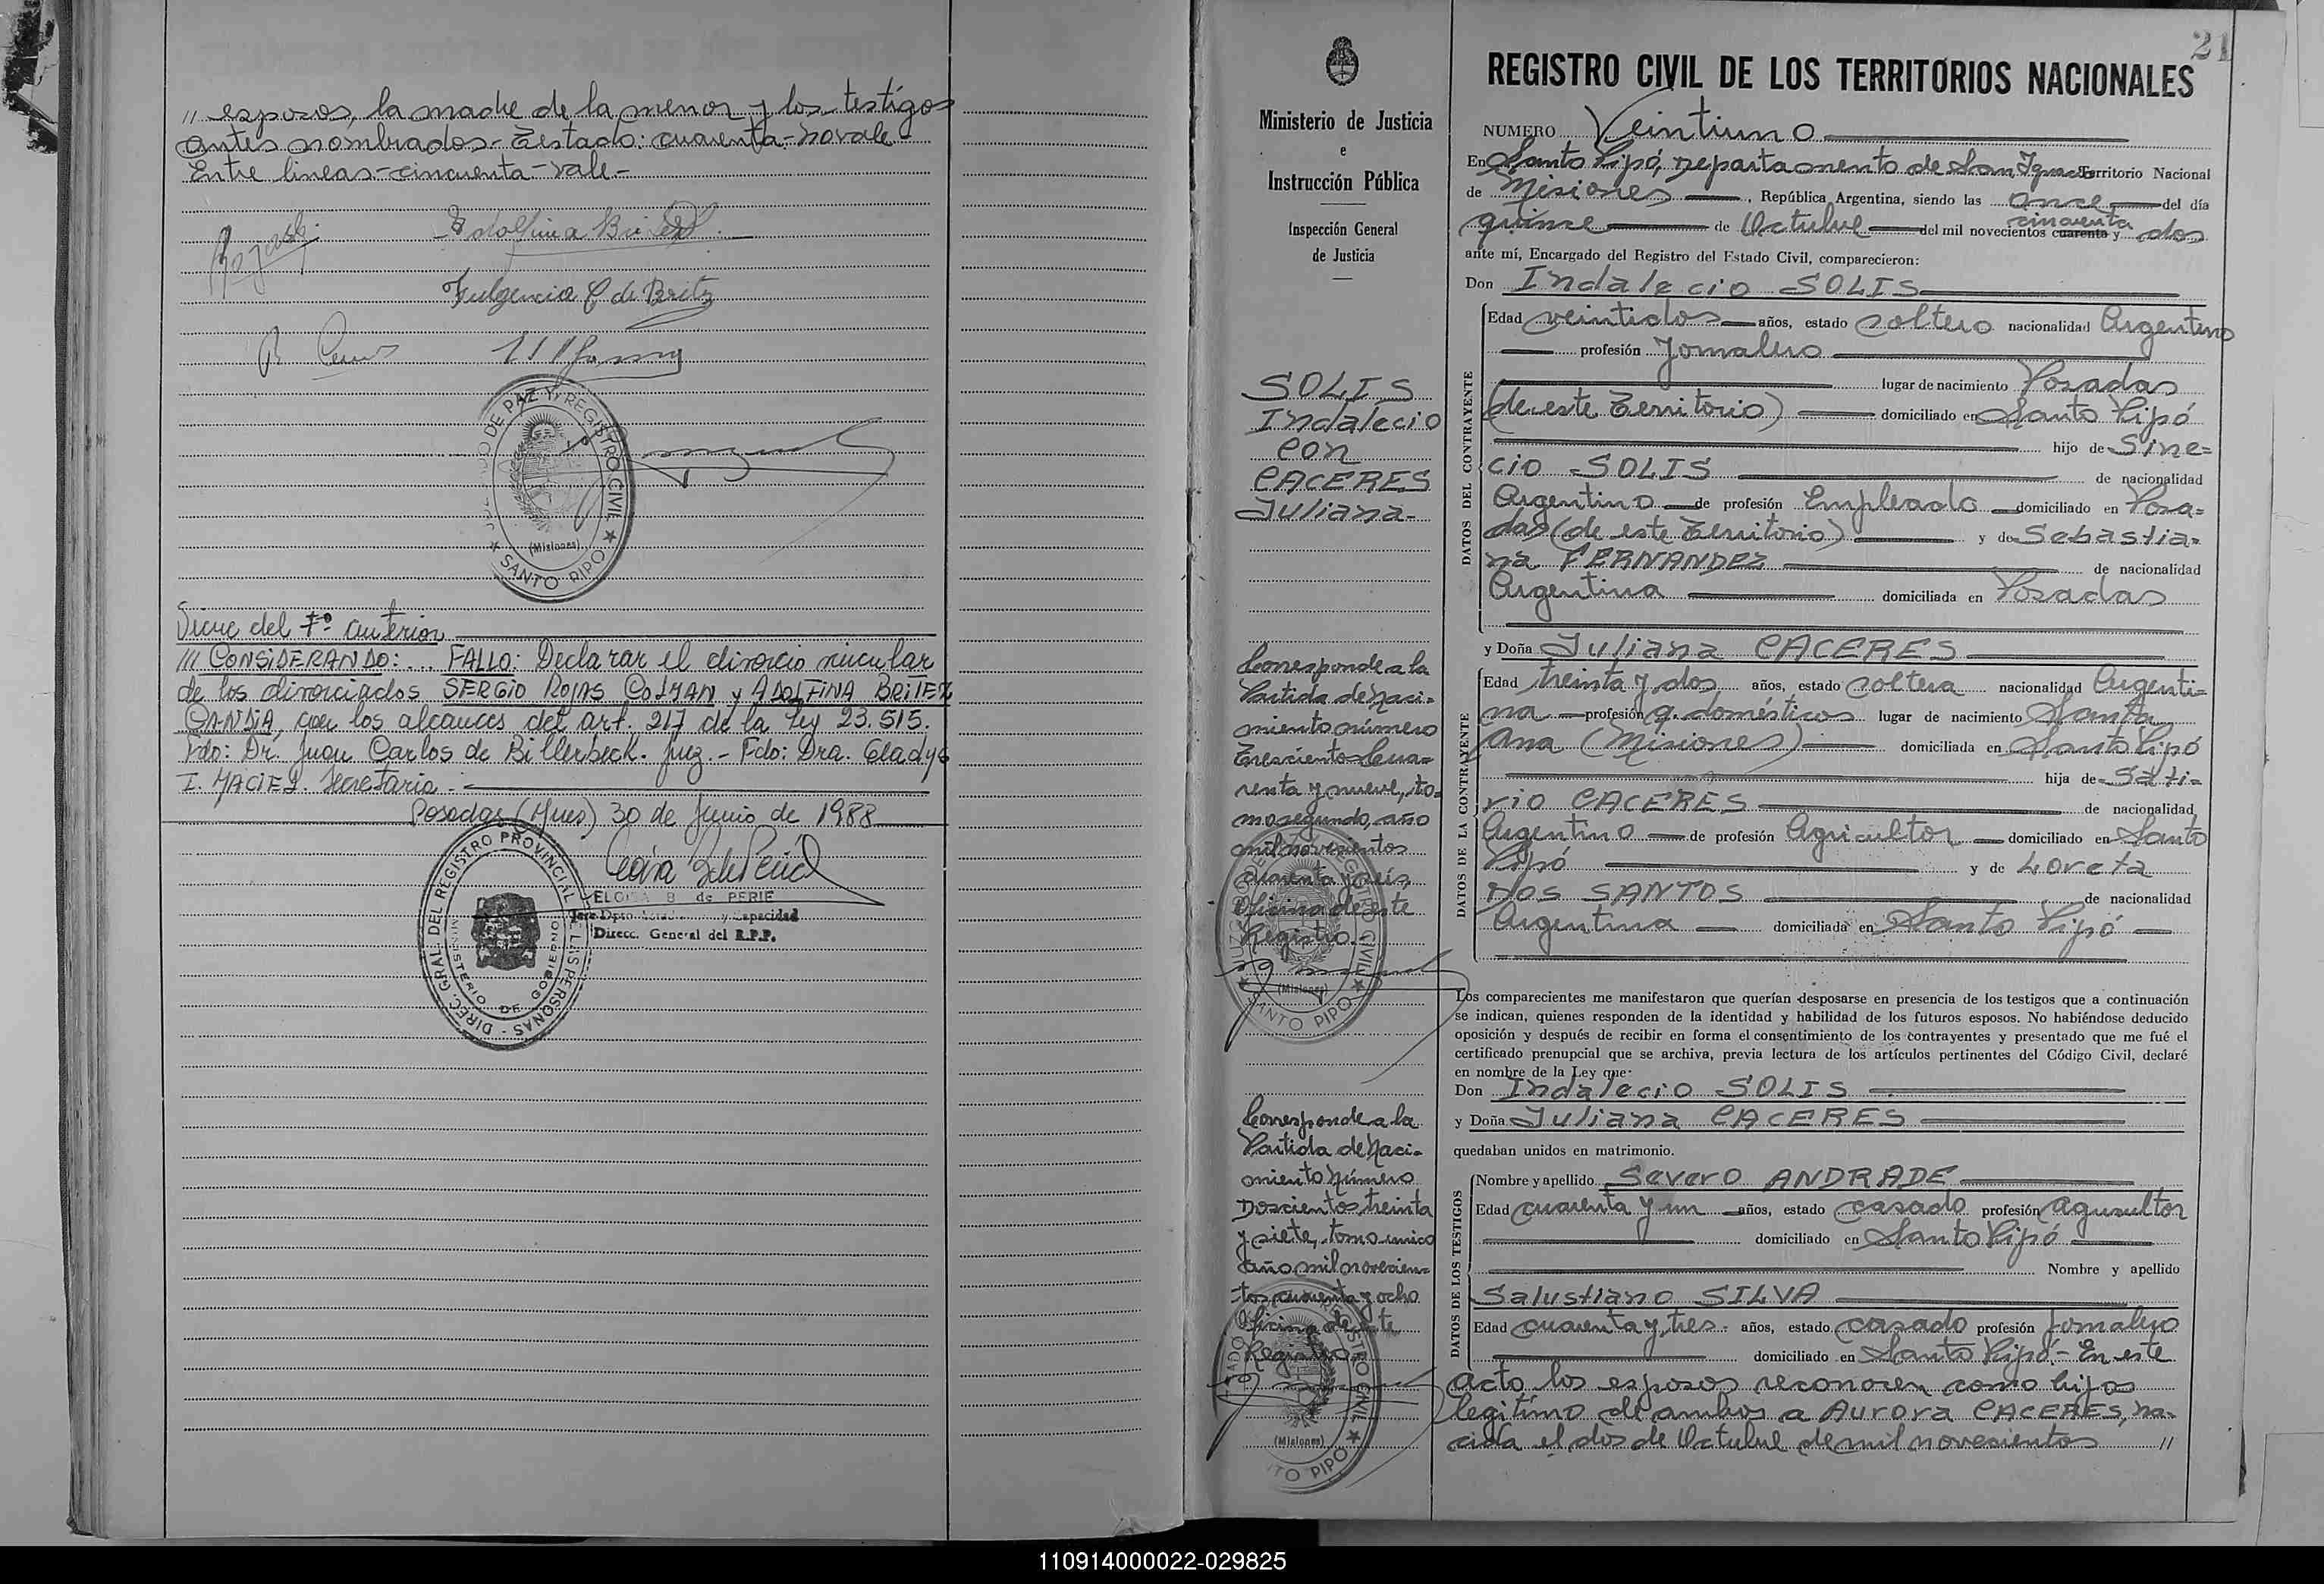 " esposos, la madre de la menor y los testigos
antes nombrados - Testado: cuarenta - No vale -
Entre lineas - cincuenta - vale -
Fulgencia C de Britz
JUZGADO DE PAZ Y REGISTRO CIVIL
(Misiones)
★ SANTO PIPO ★
Viene del Fº anterior
/// CONSIDERANDO: ... FALLO: Declarar el divorcio vincular
de los divorciados SERGIO ROJAS COLMAN y ADOLFINA BRITEZ
CANDIA, con los alcances del art. 217 de la ley 23.515.
Fdo: Dr. Juan Carlos de Billerbeck. Juez. - Fdo: Dra. Gladys
I. MACIEL. Secretaria. -
Posadas (Mnes) 30 de Junio de 1988
DIREC. GRAL. DEL REGISTRO PROVINCIAL DE LAS PERSONAS -
MINISTERIO DE GOBIERNO
ELOISA B de PERIE
Jefe Dpto. y Capacidad
Direcc. General del R.P.P.
Ministerio de Justicia
e
Instrucción Pública
Inspección General
de Justicia
SOLIS
Indalecio
con
CACERES
Juliana-
Corresponde a la
Partida de Naci-
miento número
Trescientos Cua=
renta y nueve, to=
mo segundo, año
mil novecientos
cuarenta y seis,
Oficina de este
Registro.-
(Misiones)
SANTO PIPO ★
Corresponde a la
Partida de Naci-
miento Número
Doscientos treinta
y siete, tomo unico
año mil novecien=
tos cuarenta y ocho
Oficina de este
Registro
(Misiones)
21
REGISTRO CIVIL DE LOS TERRITORIOS NACIONALES
NUMERO Veintiuno
En Santo Pipó, Departamento de San Ignacio Territorio Nacional
de Misiones, República Argentina, siendo las once del día
cincuenta
quince de Octubre del mil novecientos cuarenta y dos
ante mí, Encargado del Registro del Estado Civil, comparecieron:
Don Indalecio SOLIS
DATOS DEL CONTRAYENTE
Edad veintidos años, estado soltero nacionalidad Argentino
profesión Jornalero
lugar de nacimiento Posadas
(de este Territorio) domiciliado en Santo Pipó
hijo de Sine=
cio SOLIS de nacionalidad
Argentino de profesión Empleado domiciliado en Posa=
das (de este Territorio) y de Sebastia=
na FERNANDEZ de nacionalidad
Argentina domiciliada en Posadas
y Doña Juliana CACERES
DATOS DE LA CONTRAYENTE
Edad treinta y dos años, estado soltera nacionalidad Argenti=
na profesión q. domésticos lugar de nacimiento Santa
Ana (Misiones) domiciliada en Santo Pipó
hija de Sati=
rio CACERES de nacionalidad
Argentino de profesión Agricultor domiciliado en Santo
Pipó y de Loreta
DOS SANTOS de nacionalidad
Argentina domiciliada en Santo Pipó
Los comparecientes me manifestaron que querían desposarse en presencia de los testigos que a continuación
se indican, quienes responden de la identidad y habilidad de los futuros esposos. No habiéndose deducido
oposición y después de recibir en forma el consentimiento de los contrayentes y presentado que me fué el
certificado prenupcial que se archiva, previa lectura de los artículos pertinentes del Código Civil, declaré
en nombre de la Ley que:
Don Indalecio SOLIS
y Doña Juliana CACERES
quedaban unidos en matrimonio.
DATOS DE LOS TESTIGOS
Nombre y apellido Severo ANDRADE
Edad cuarenta y un años, estado casado profesión agricultor
domiciliado en Santo Pipó
Nombre y apellido
Salustiano SILVA
Edad cuarenta y tres años, estado casado profesión Jornalero
domiciliado en Santo Pipó.- En este
acto los esposos reconocen como hijos
legitimo de ambos a Aurora CACERES, na-
cida el dos de Octubre de mil novecientos "
110914000022-029825